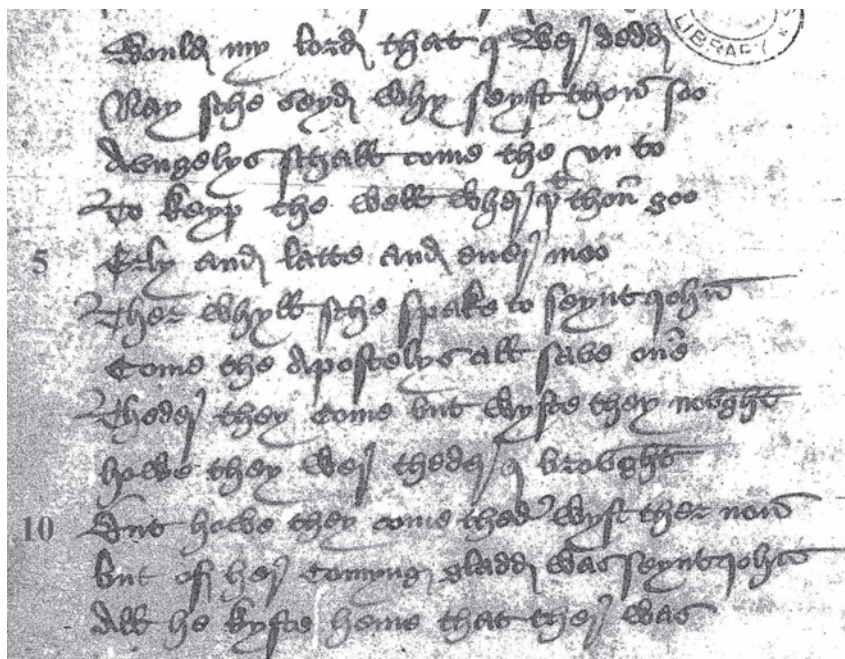 Would my lord that I wer dedd
Nay sche seyd why seyst thou soo
Aungelys schall come the vn to
To keyp the well wher þt thou goo
5 Erly and latte and euer moo
Ther whyll sche spake to seynt Iohn
Come the Apostelys all save one
Theder they come but wyste they nought
howe they wer theder I brought
10 But howe they come theder wyst ther non
but of her comyng gladd was seynt Iohn
All he kyste heme that ther was
LIBRARY